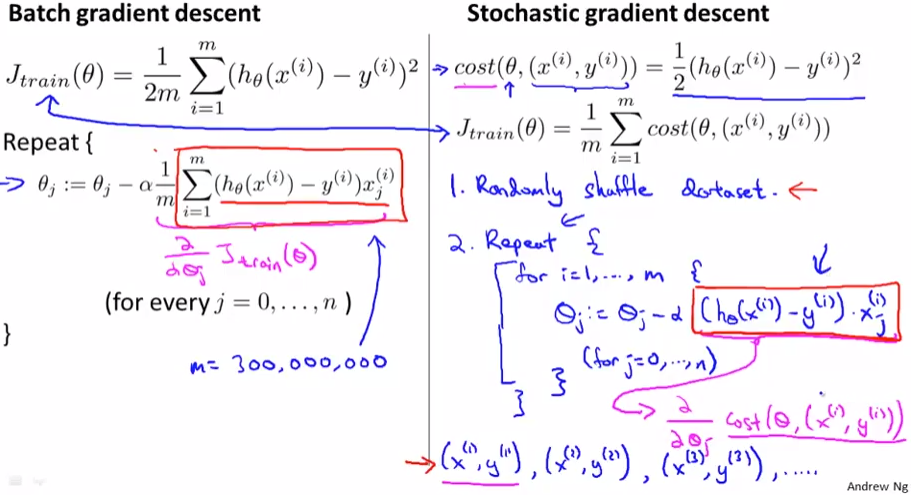 Batch gradient descent
J_train(θ) = 1/2m ∑_{i=1}^{m} (h_θ(x^(i)) − y^(i))²
Repeat {
θ_j := θ_j − α 1/m ∑_{i=1}^{m} (h_θ(x^(i)) − y^(i)) x_j^(i)
∂/∂θ_j J_train(θ)
(for every j = 0, . . . , n )
}
m = 300,000,000
Stochastic gradient descent
cost(θ, (x^(i), y^(i))) = 1/2 (h_θ(x^(i)) − y^(i))²
J_train(θ) = 1/m ∑_{i=1}^{m} cost(θ, (x^(i), y^(i)))
1. Randomly shuffle dataset.
2. Repeat {
for i=1,...., m {
θ_j := θ_j − α (h_θ(x^(i)) − y^(i)) · x_j^(i)
(for j=0,...,n)
}
}
∂/∂θ_j cost(θ, (x^(i), y^(i)))
(x^(1), y^(1)), (x^(2), y^(2)), (x^(3), y^(3)), .....
Andrew Ng